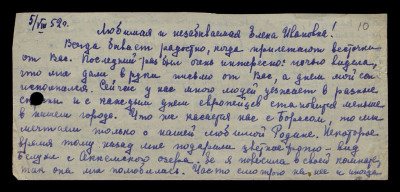 5/VIII 52 г.
10
Любимая и незабываемая Елена Ивановна!
Всегда бывает радостно, когда прилетают весточки
от Вас. Последний раз было интересно: ночью видела,
что мне дали в руки письмо от Вас, а днем мой сон
исполнился. Сейчас у нас много людей уезжает в разные
страны и с каждым днем европейцев становится меньше
в нашем городе. Что же касается нас с Борисом, то мы
мечтаем только о нашей любимой Родине. Некоторое
время тому назад мне подарили цветное фото - вид
Белухи с Аккемского озера, я повесила в своей комнате,
так она мне полюбилась. Часто смотрю на нее и иногда